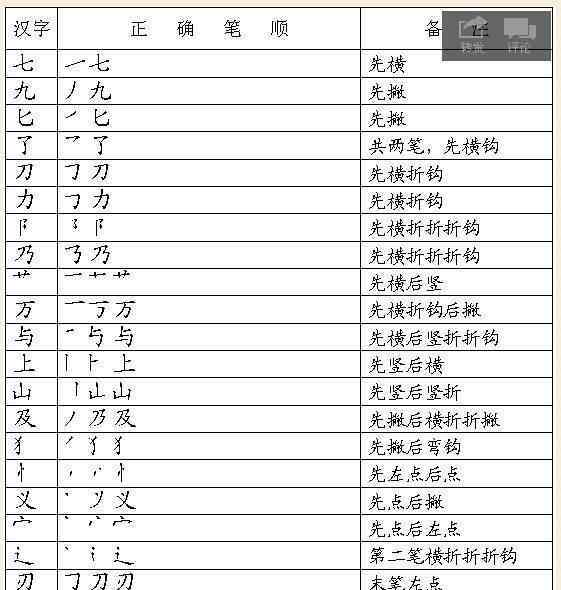 汉字 正确笔顺 备注
转发 评论
七 ㇀七 先横
九 丿九 先撇
匕 ㇒匕 先撇
了 乛了 共两笔，先横钩
刀 𠃌刀 先横折钩
力 𠃌力 先横折钩
阝 ㇌阝 先横折折折钩
乃 ㇡乃 先横折折折钩
艹 一 十 艹 先横后竖
万 一 丂 万 先横折钩后撇
与 一 与 与 先横后竖折折钩
上 丨 ⺊ 上 先竖后横
山 丨 山 山 先竖后竖折
及 丿 乃 及 先撇后横折折撇
犭 ㇒ 犭 犭 先撇后弯钩
忄 丶 丷 忄 先左点后点
义 丶 丷 义 先点后撇
宀 丶 丷 宀 先点后左点
辶 丶 讠 辶 第二笔横折折折钩
刃 𠃌 刀 刃 末笔左点